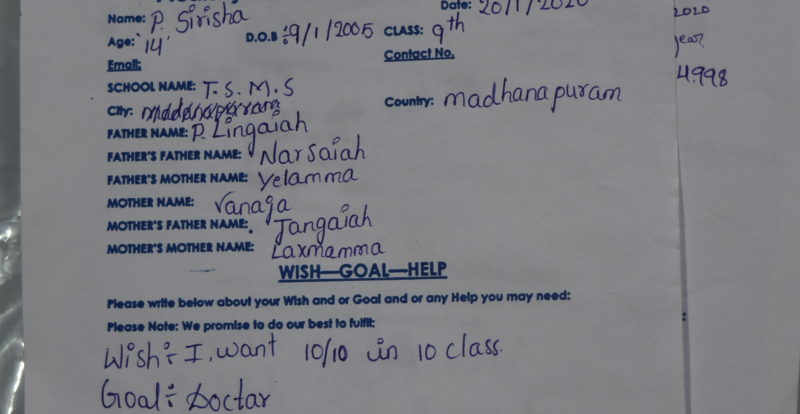 Name: P. Sirisha
Date: 20/1/2020
Age: '14' D.O.B : 9/1/2005 CLASS: 9th
Email: Contact No.
SCHOOL NAME: T.S.M.S
City: Country: madhanapuram
FATHER NAME: P. Lingaiah
FATHER'S FATHER NAME: Narsaiah
FATHER'S MOTHER NAME: Yelamma
MOTHER NAME: Vanaja
MOTHER'S FATHER NAME: Jangaiah
MOTHER'S MOTHER NAME: Laxmamma
WISH—GOAL—HELP
Please write below about your Wish and or Goal and or any Help you may need:
Please Note: We promise to do our best to fulfil:
Wish : I, want 10/10 in 10 class.
Goal : Doctar
2020
year
4.998